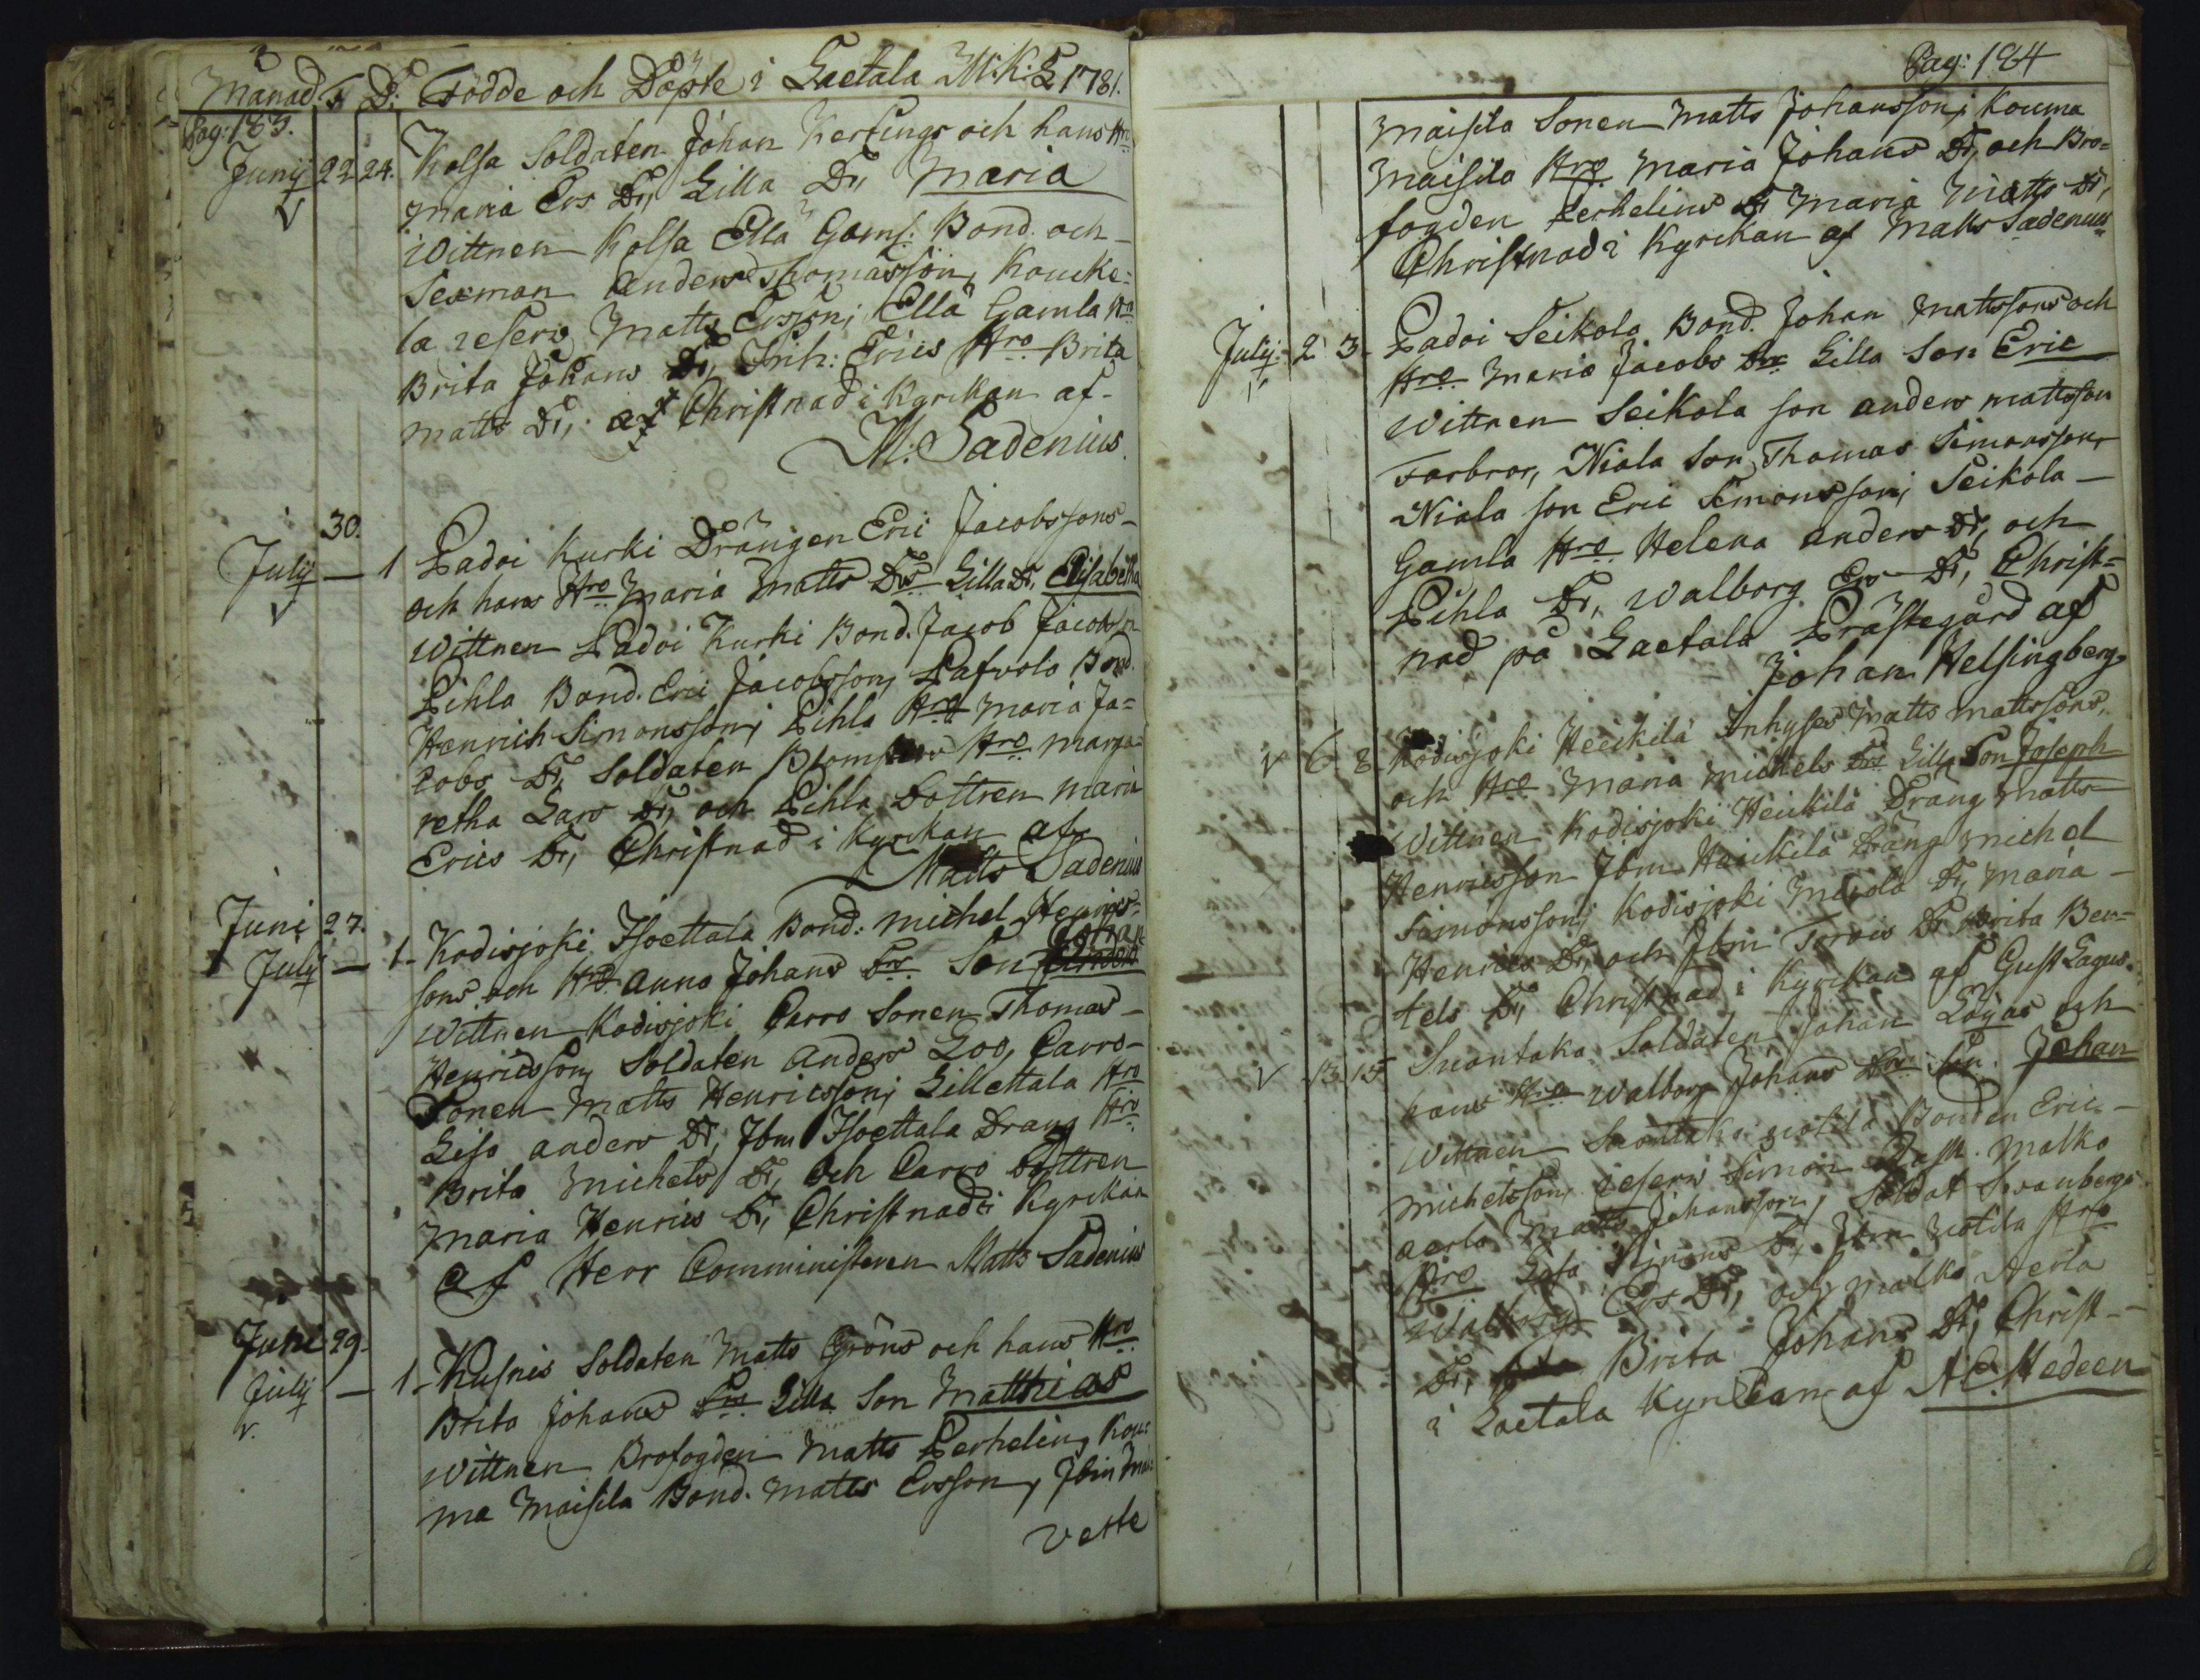 Månad. F D. Födde och Döpte i Laetala M.K. 1781.
Pag: 183.
Junij 22 24. Kolsa Soldaten Johan Kerfings och hans Hro
Maria Ers Dr, Lilla Dr, Maria
Wittnen Kolsa Ella Gaml. Bond. och
Sexman Anders Thomasson, Koucke=
la reserv Matts Ersson, Ella Gamla Hro
Brita Johans Dr, Inh: Erics Hro Brita
Matts Dr, Christnad i Kyrckan af
M. Sadenius.
30.
Julij — 1 Padoi Kurki Drängen Eric Jacobssons
och hans Hro Maria Matts Drs Lilla Dr, Elisabetha
Wittnen Padoi Kurki Bond. Jacob Jacobsn
Pihla Bond. Eric Jacobsson, Pafvola Bond.
Henrich Simonsson, Pihla Hro Maria Ja=
cobs Dr, Soldaten Hro Marga=
retha Lars Dr, och Pihla Dottren Maria
Erics Dr, Christnad i Kyrckan af
Matts Sadenius
Juni 27.
Julij — 1 Kodisjoki Isoettala Bond: Michel Henrics=
sons och Hro Anna Johans Drs Son Johan
Wittnen Kodisjoki Carro Sonen Thomas
Henricsson, Soldaten Anders Loo, Carro
Sonen Matts Henricsson, Lillettala Hro
Lisa Anders Dr, Ibm Isoettala Dräng Hro
Brita Michels Dr, Och Carro Dottren
Maria Henrics Dr, Christnad i Kyrckan
af Herr Comministeren Matts Sadenius
Juni 29.
Julij — 1 Kusnis Soldaten Matts Gröns och hans Hro
Brita Johans Drs Lilla Son Matthias
Wittnen Brofogden Matts Perhelin, Kou=
ma Maisila Bond. Matts Ersson, Ibm
vette
Pag: 184
Maisila Sonen Matts Johansson, Kouma
Maisila Hro Maria Johans Dr, och Bro=
fogden Perhelins Dr Maria Matts Dr,
Christnad i Kyrckan af Matts Sadenius
Julij 2 3 Padoi Seikola Bond. Johan Mattssons och
Hro Maria Jacobs Drs Lilla Son Eric
Wittnen Seikola son Anders Mattsson
Farbror, Niala Son Thomas Simonsson,
Niala son Eric Simonsson, Seikola
Gamla Hro Helena Anders Dr, och
Pihla Dr, Walborg Ers Dr, Christ=
nad på Laetala Prästegård af
Johan Helsingberg
6 8 Kodisjoki Heickilä Inhyses Matts Mattssons,
och Hro Maria Michels Drs Lilla Son Joseph
Wittnen Kodisjoki Heickilä Dräng Matts
Henricsson Ibm Heickilä Dräng Michel
Simonsson, Kodisjoki Dr, Maria
Henrics Dr, och Ibm Dr Brita Ber=
tels Dr, Christnad i Kyrckan af Gust Lagus.
13 15 Suontaka Soldaten Johan Lögas och
hans Hro Walborg Johans Drs Son Johan
Wittnen Suontaka Bonden Eric
Michelsson, reserv Simon Malko
Matts Johansson, Soldat Svanbergs
Hro Simons Dr, Ibm Hro
Walborg Ers Dr, och Malko
Dr, Brita Johans Dr, Christ-
i Laetala Kyrckan af A C Hedeen